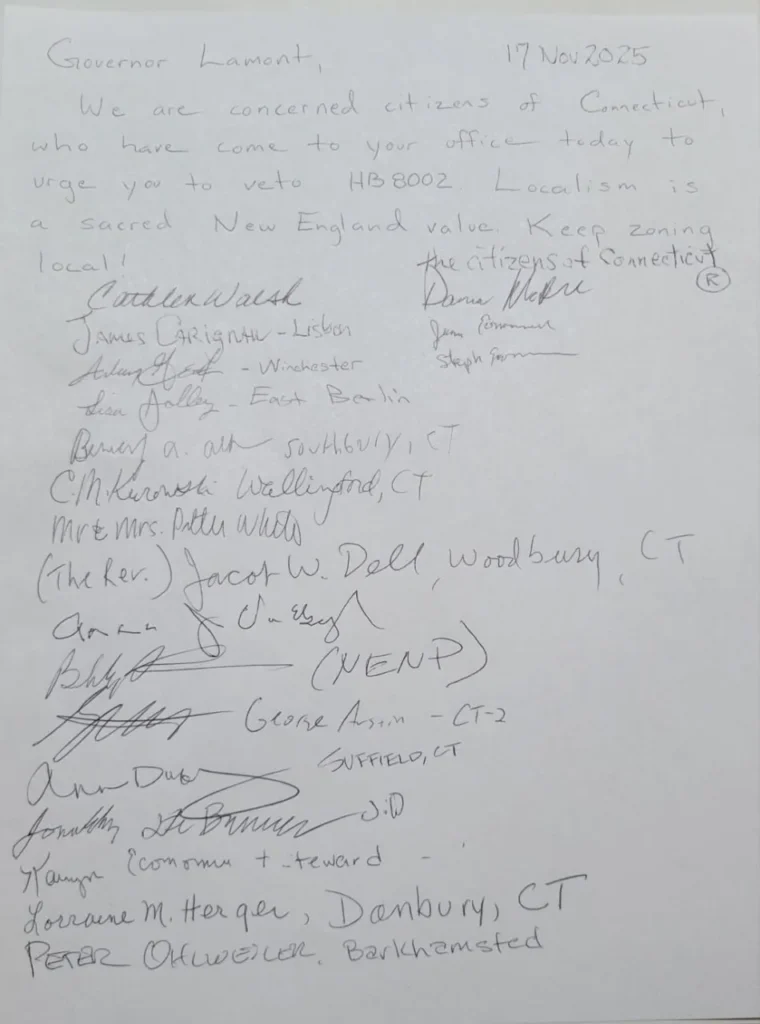 Governor Lamont, 17 Nov 2025
We are concerned citizens of Connecticut,
who have come to your office today to
urge you to veto HB 8002. Localism is
a sacred New England value. Keep zoning
local!
the citizens of Connecticut
R
Cathleen Walsh
James Carignan - Lisbon
- Winchester
Lisa - East Berlin
a. Southbury, CT
C.M. Kurowski Wallingford, CT
Mr & Mrs. White
(The Rev.) Jacob W. Dell, Woodbury, CT
(NENP)
George Austin - CT-2
Suffield, CT
Ann
J.D
Lorraine M. Herger, Danbury, CT
PETER OHLWEILER, Barkhamsted